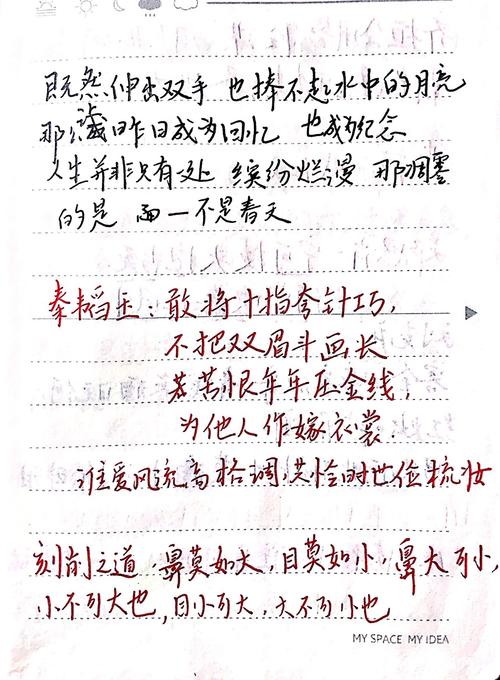 既然伸出双手 也捧不起水中的月亮
那么让昨日成为回忆 也成为纪念
人生并非只有一处 缤纷烂漫 那凋零
的是 而一不是春天
秦韬玉：敢将十指夸针巧，
不把双眉斗画长
苦苦恨年年压金线，
为他人作嫁衣裳.
谁爱风流高格调，共怜时世俭梳妆
刻削之道，鼻莫如大，目莫如小，鼻大可小，
小不可大也，目小可大，大不可小也
MY SPACE MY IDEA